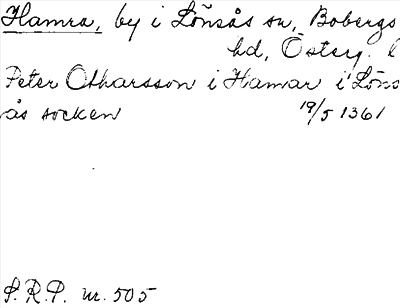 Hamra, by i Lönsås sn, Bobergs
hd, Österg. l
Peter Otharsson i Hamar i Löns
ås socken 19/5 1361
S.R.P. nr. 505